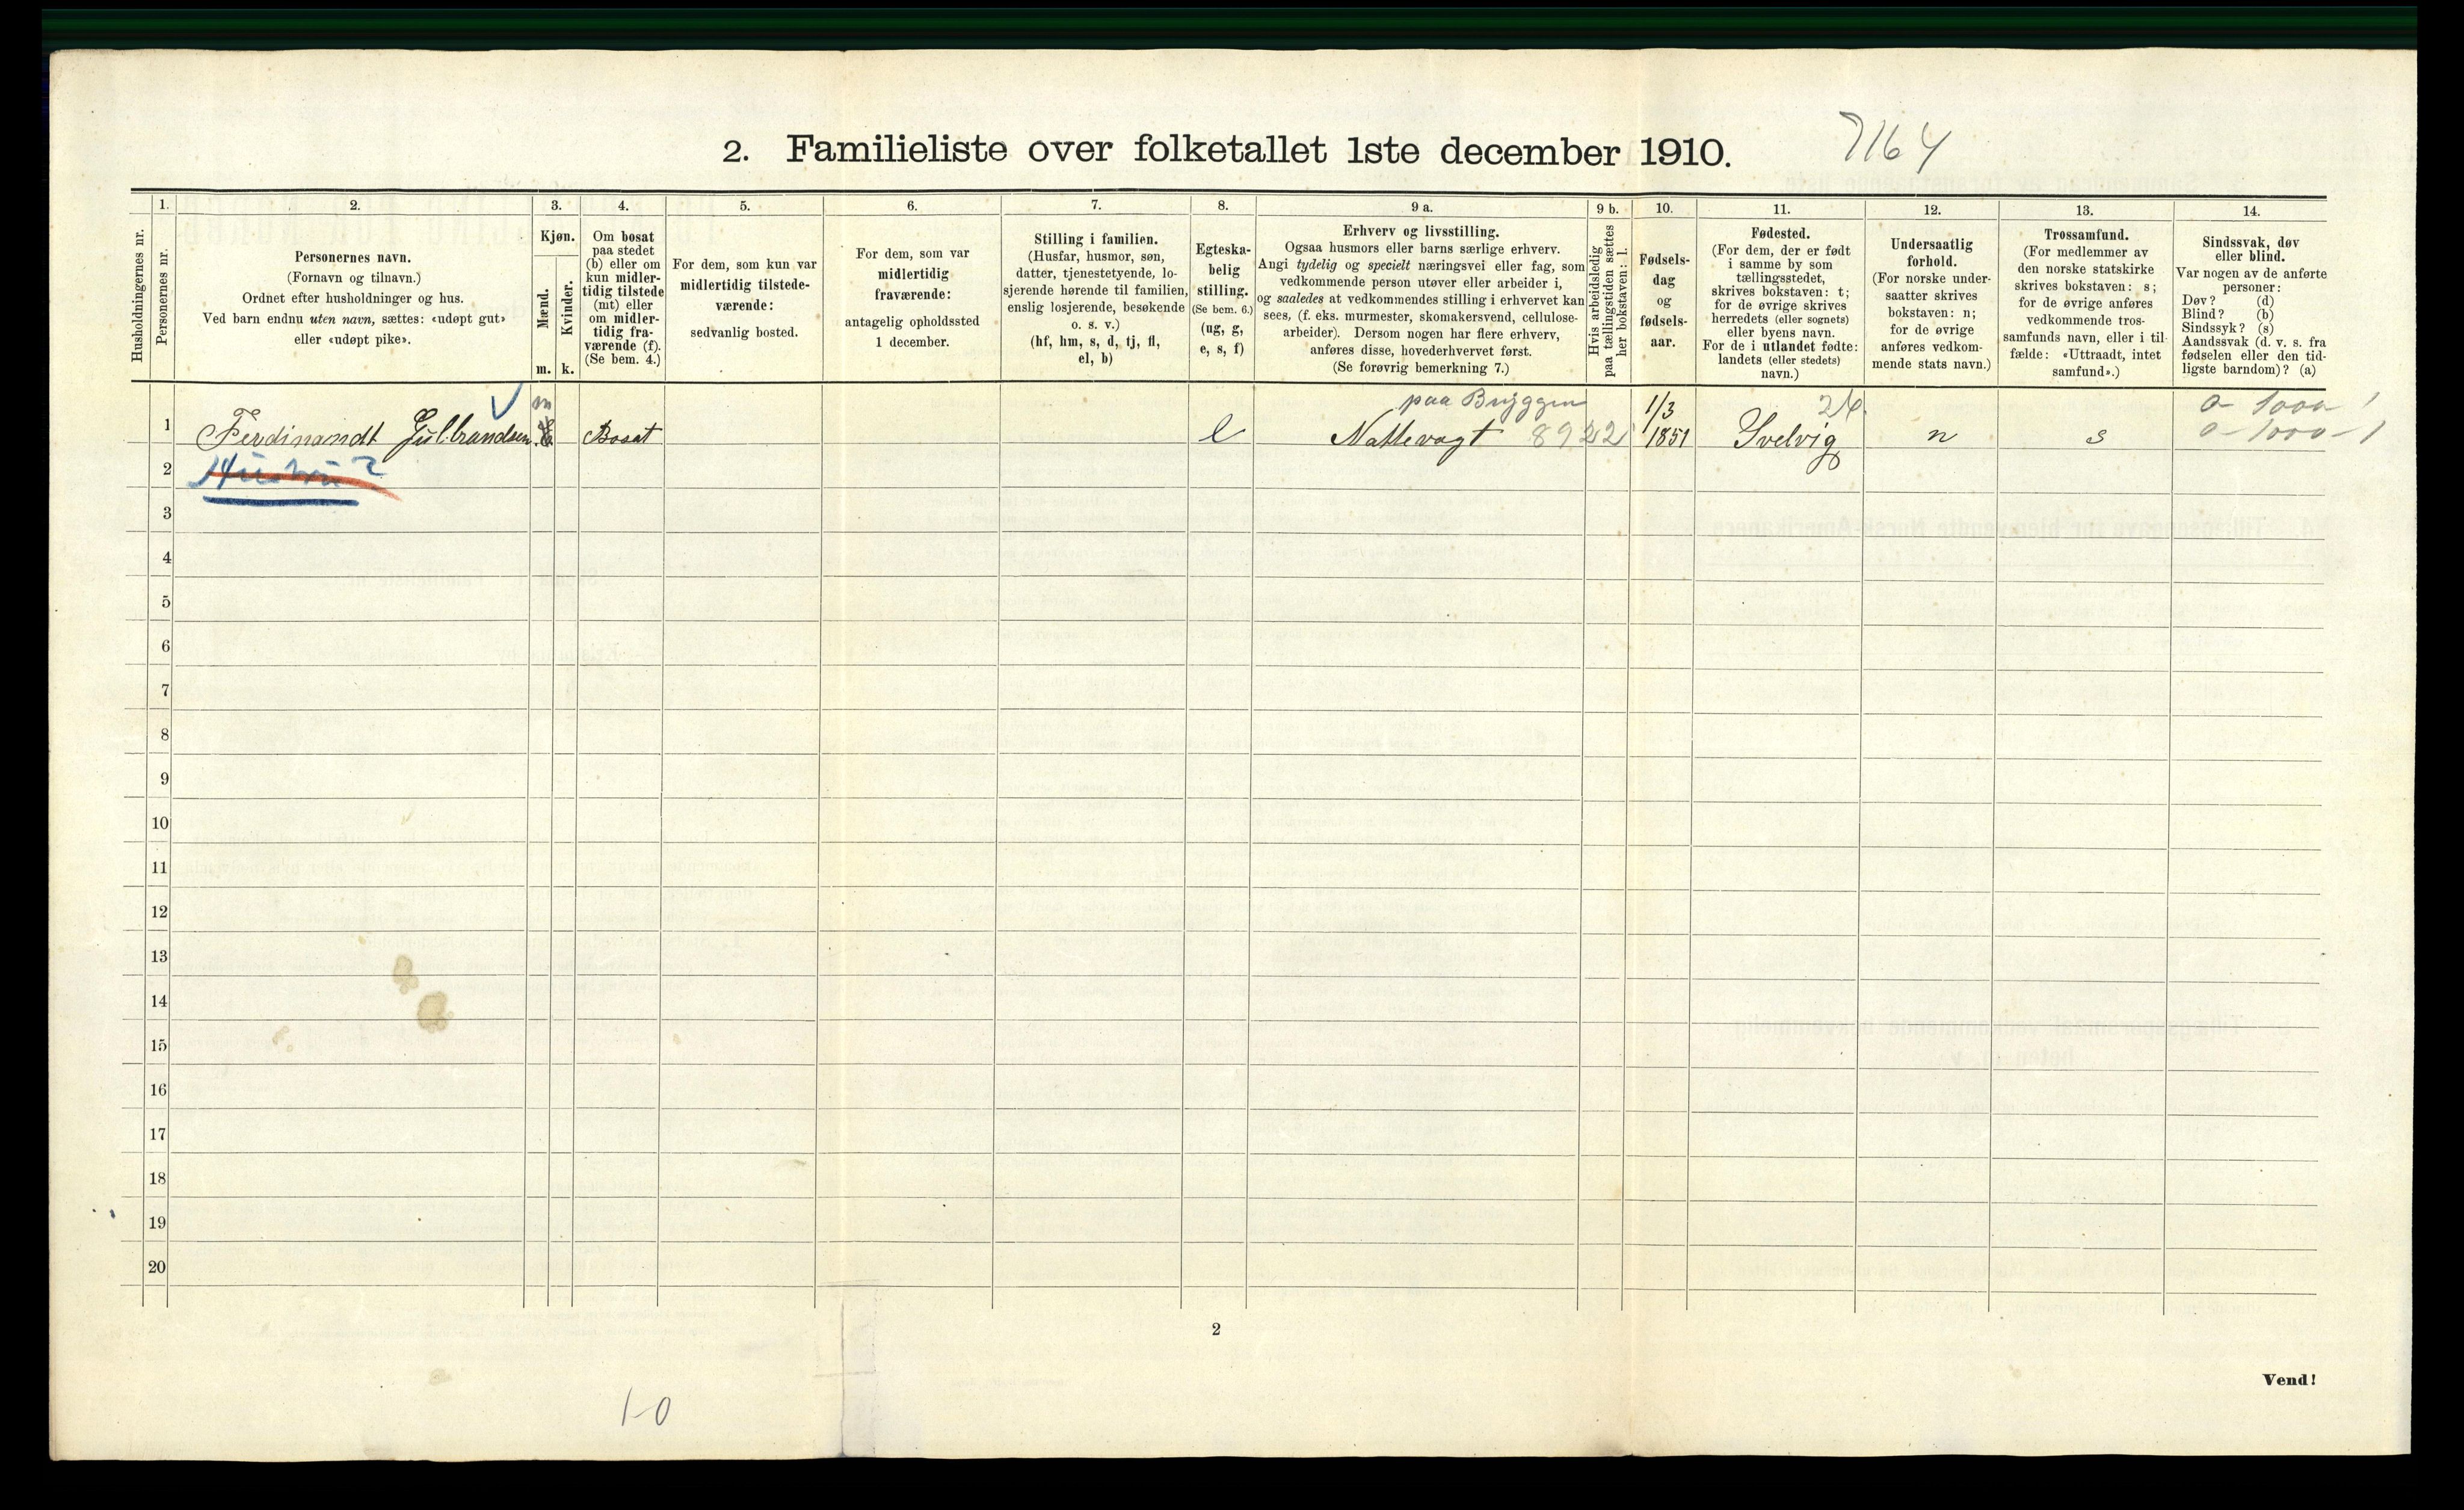 2. Familieliste over folketallet 1ste december 1910.
7164
Husholdningernes nr.
1.
Personernes nr.
2.
Personernes navn.
(Fornavn og tilnavn.)
Ordnet efter husholdninger og hus.
Ved barn endnu uten navn, sættes: «udøpt gut»
eller «udøpt pike».
3.
Kjøn.
Mænd.
Kvinder.
m. k.
4.
Om bosat
paa stedet
(b) eller om
kun midler-
tidig tilstede
(mt) eller
om midler-
tidig fra-
værende (f).
(Se bem. 4.)
5.
For dem, som kun var
midlertidig tilstede-
værende:
sedvanlig bosted.
6.
For dem, som var
midlertidig
fraværende:
antagelig opholdssted
1 december.
7.
Stilling i familien.
(Husfar, husmor, søn,
datter, tjenestetyende, lo-
sjerende hørende til familien,
enslig losjerende, besøkende
o. s. v.)
(hf, hm, s, d, tj, fl,
el, b)
8.
Egteska-
belig
stilling.
(Se bem. 6.)
(ug, g,
e, s, f)
9 a.
Erhverv og livsstilling.
Ogsaa husmors eller barns særlige erhverv.
Angi tydelig og specielt næringsvei eller fag, som
vedkommende person utøver eller arbeider i,
og saaledes at vedkommendes stilling i erhvervet kan
sees, (f. eks. murmester, skomakersvend, cellulose-
arbeider). Dersom nogen har flere erhverv,
anføres disse, hovederhvervet først.
(Se forøvrig bemerkning 7.)
9 b.
Hvis arbeidsledig
paa tællingstiden sættes
her bokstaven: l.
10.
Fødsels-
dag
og
fødsels-
aar.
11.
Fødested.
(For dem, der er født
i samme by som
tællingsstedet,
skrives bokstaven: t;
for de øvrige skrives
herredets (eller sognets)
eller byens navn.
For de i utlandet fødte:
landets (eller stedets)
navn.)
12.
Undersaatlig
forhold.
(For norske under-
saatter skrives
bokstaven: n;
for de øvrige
anføres vedkom-
mende stats navn.)
13.
Trossamfund.
(For medlemmer av
den norske statskirke
skrives bokstaven: s;
for de øvrige anføres
vedkommende tros-
samfunds navn, eller i til-
fælde: «Uttraadt, intet
samfund».)
14.
Sindssvak, døv
eller blind.
Var nogen av de anførte
personer:
Døv? (d)
Blind? (b)
Sindssyk? (s)
Aandssvak (d. v. s. fra
fødselen eller den tid-
ligste barndom)? (a)
m paa Bryggen 1/3 0-1000-1
1 Ferdinandt Gulbrandsen Bosat e Nattevagt 8922 1851 Svelvig n s 0-1000-1
2
3
4
5
6
7
8
9
10
11
12
13
14
15
16
17
18
19
20
2
Vend!
1-0